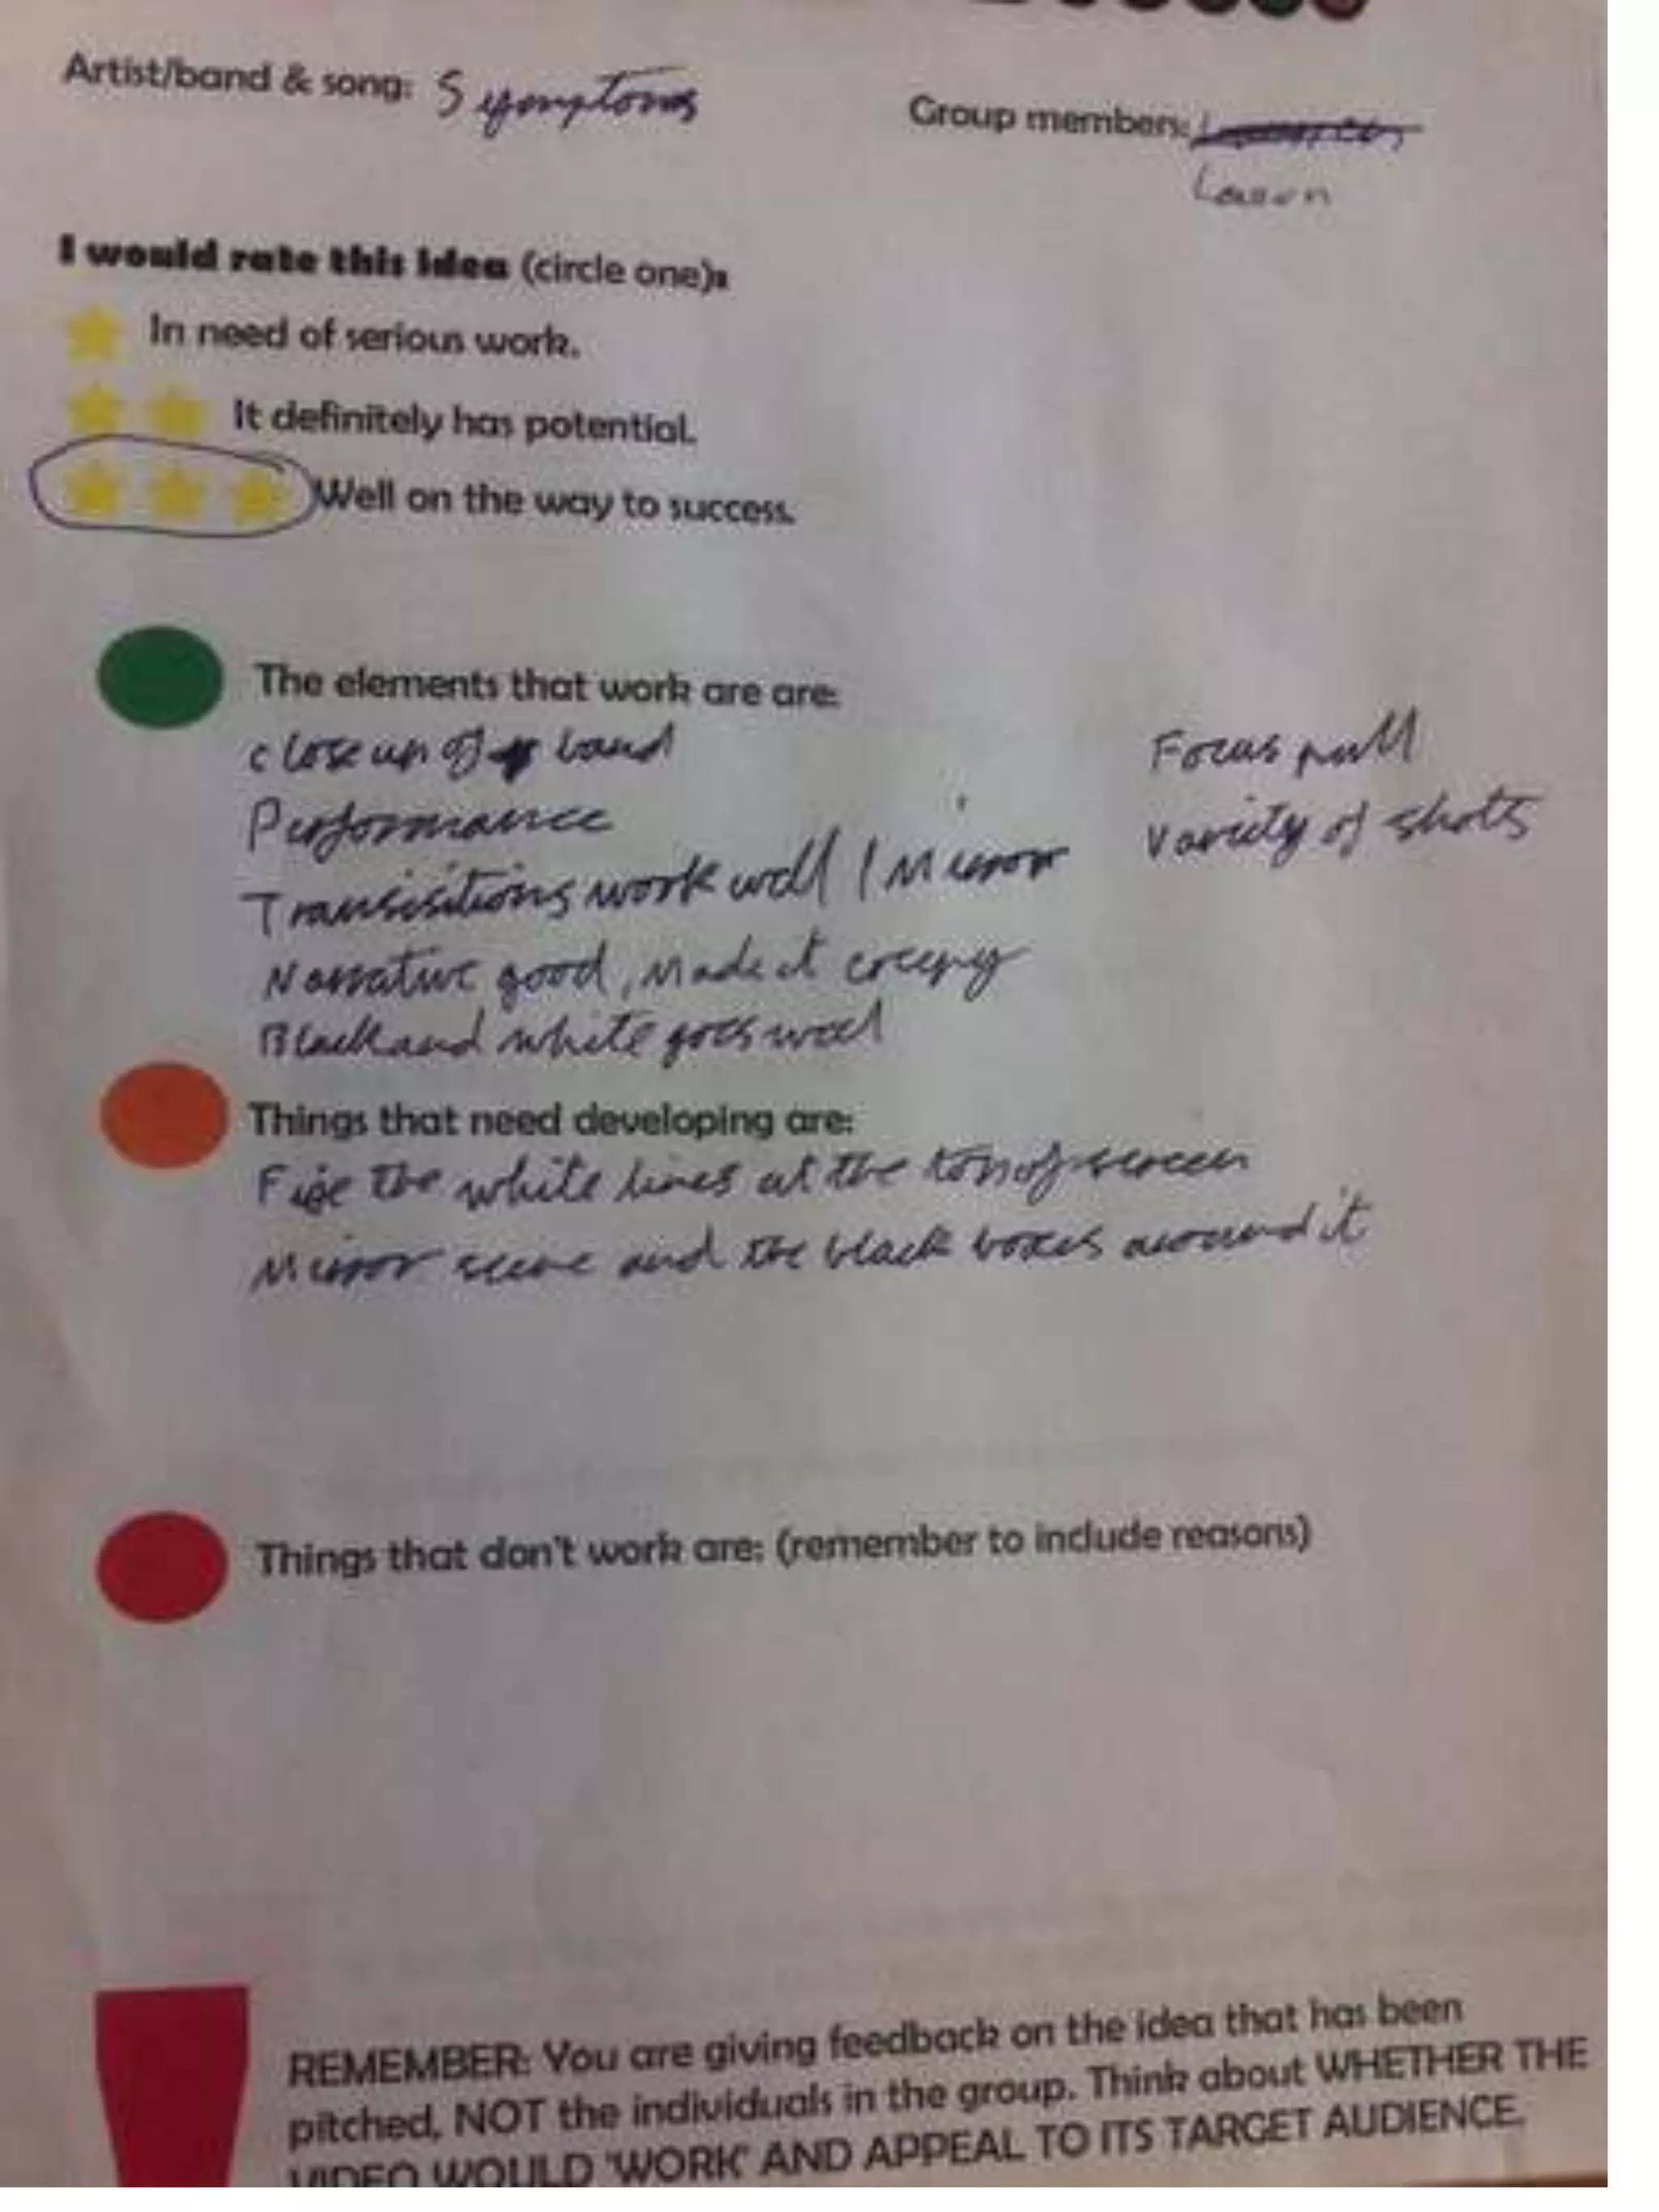 Artist/band & song: Symptoms
Group members:
I would rate this idea (circle one):
In need of serious work.
It definitely has potential.
Well on the way to success.
The elements that work are are:
close up of band
Performance
Transisitions work well / Mirror
Narrative good, made it creepy
Black and white goes well
Focus pull
Variety of shots
Things that need developing are:
the white lines at the top of screen
Mirror scene and the black boxes around it
Things that don't work are: (remember to include reasons)
REMEMBER: You are giving feedback on the idea that has been
pitched, NOT the individuals in the group. Think about WHETHER THE
VIDEO WOULD 'WORK' AND APPEAL TO ITS TARGET AUDIENCE.